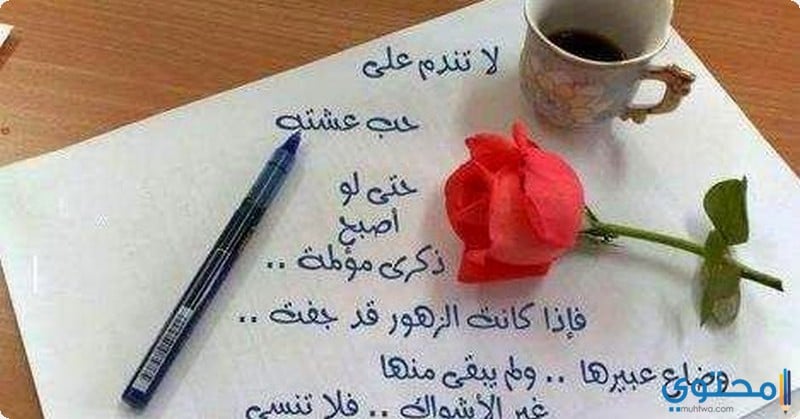 لا تندم على
حب عشته
حتى لو
أصبح
ذكرى مؤلمة ..
فإذا كانت الزهور قد جفت ..
وضاع عبيرها .. ولم يبقى منها
غير الأشواك .. فلا تنسى
محتوى
www.muhtwa.com